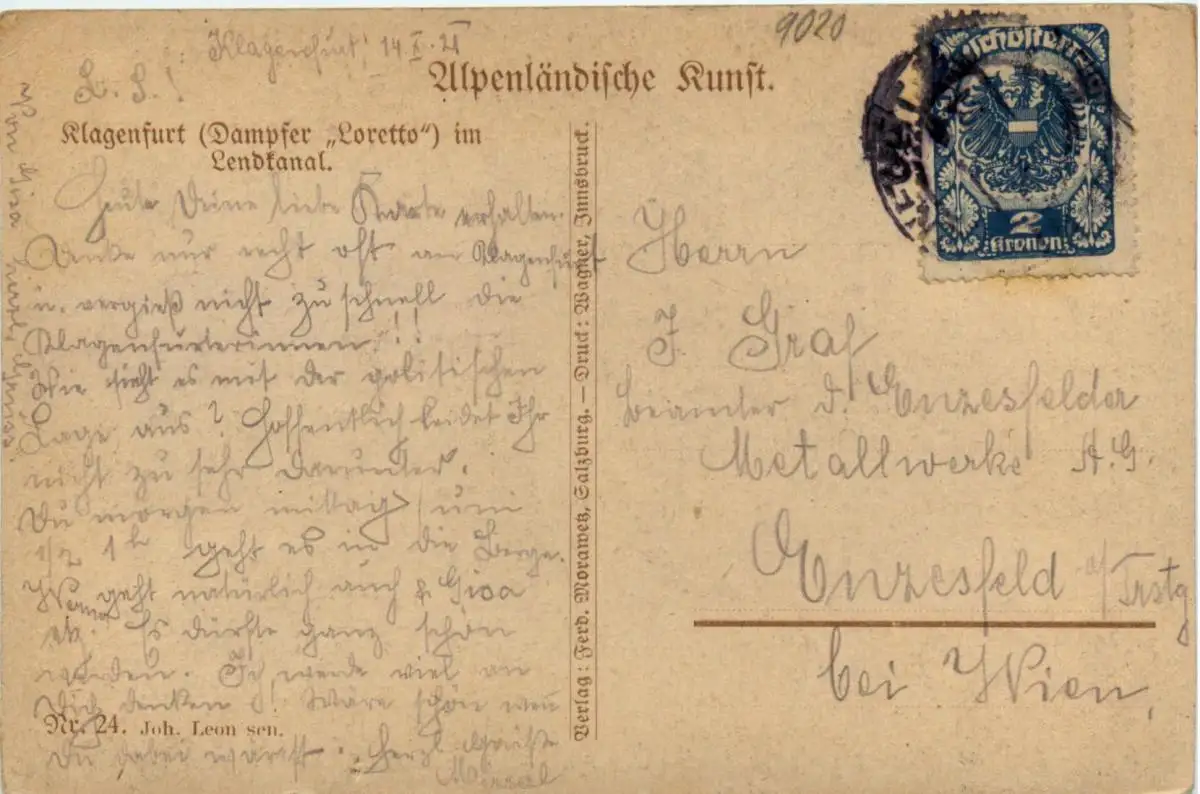 9020
Klagenfurt 14 X. 21
Alpenländische Kunst.
L. S.!
Klagenfurt (Dampfer „Loretto“) im
Lendkanal.
Heute Deine liebe Karte erhalten.
Denke nur recht oft an Klagenfurt
u. vergieß nicht zu schnell die
Klagenfurterinnen!!!
Wie sieht es mit der politischen
Lage aus? Hoffentlich leidet Ihr
nicht zu sehr darunter.
Du morgen mittag um
1/2 1h geht es in die Berge.
geht natürlich auch Gisa
etz. Es dürfte ganz schön
werden. Ich werde viel an
Dich denken! Wäre schön wenn
Nr. 24. Joh. Leon sen.
Du dabei wärst. Herzl. Grüße
Von Gisa
Verlag: Ferd. Morawetz, Salzburg. — Druck: Wagner, Innsbruck.
2
Kronen
Herrn
J. Graf
Beamter d. Enzesfelder
Metallwerke A. G.
Enzesfeld a/Trstg
bei Wien,